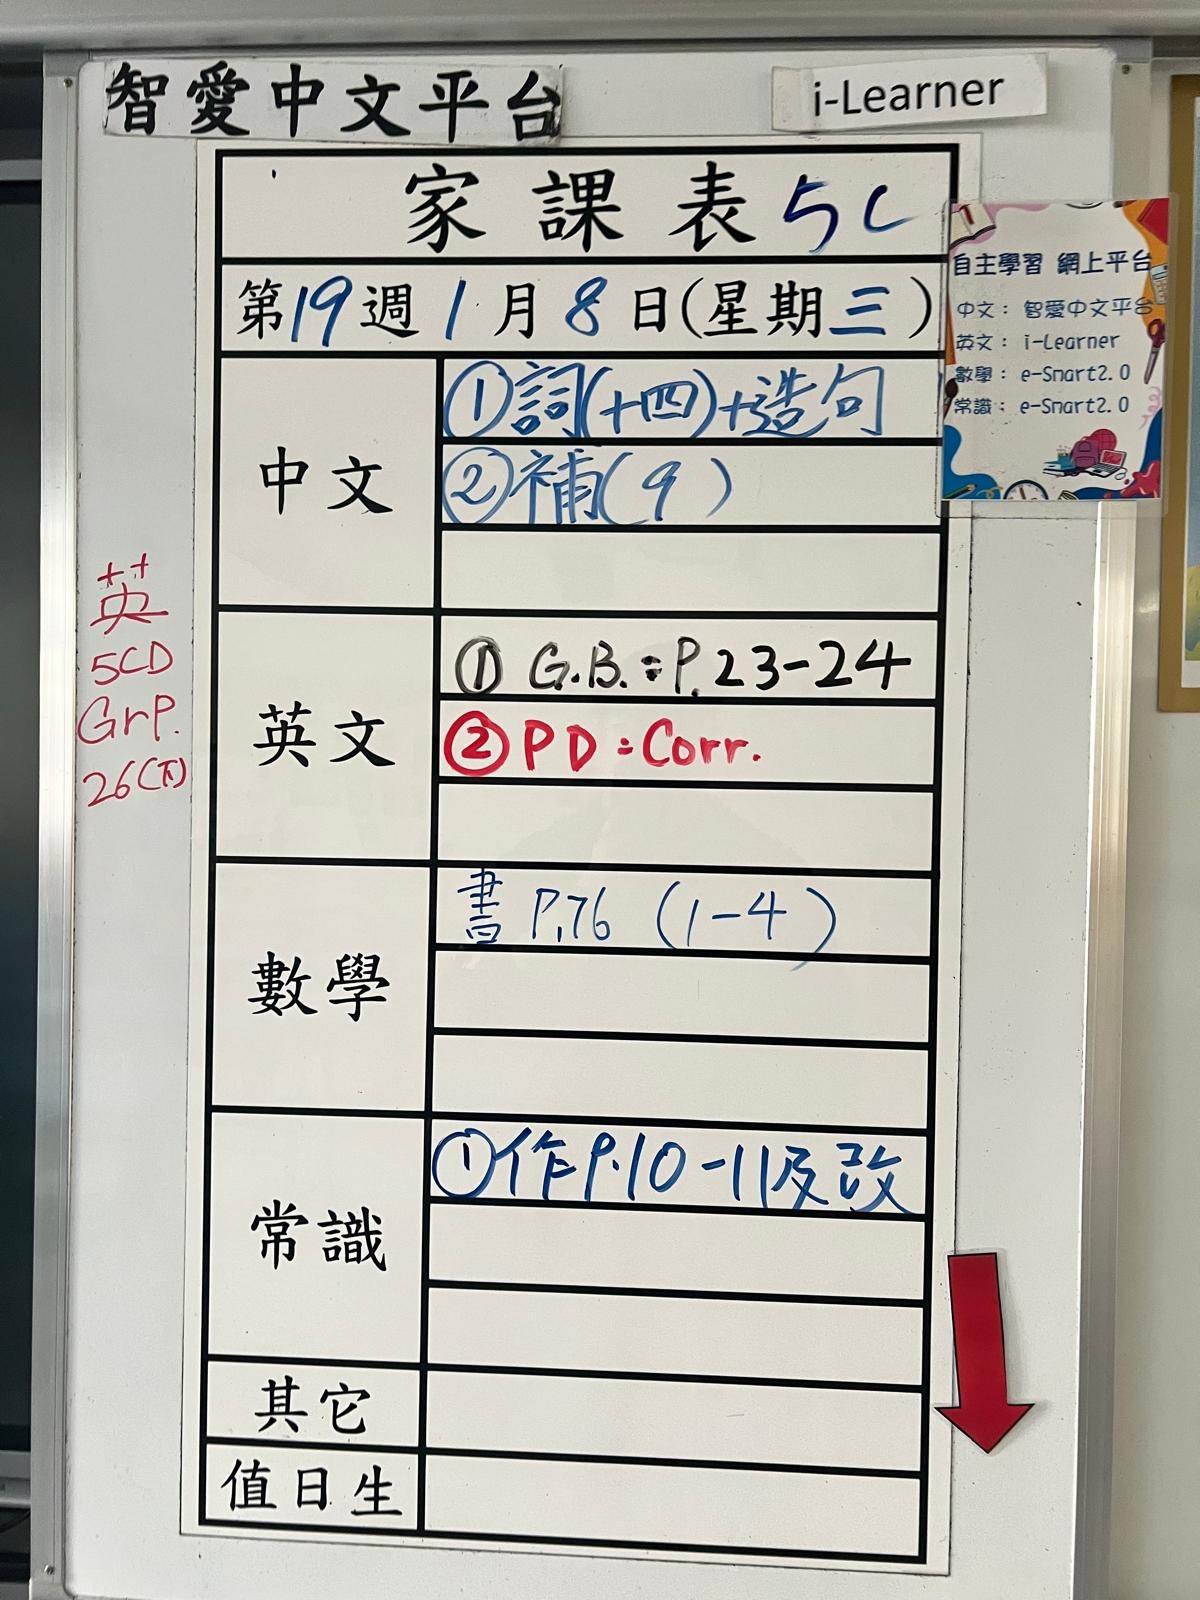 智愛中文平台
i-Learner
家課表 5C
第19週 1月8日(星期三)
自主學習 網上平台
中文： 智愛中文平台
英文： i-Learner
數學： e-Smart2.0
常識： e-Smart2.0
中文
①詞(十四)+造句
②補(9)
英
5CD
GrP.
26(下)
英文
① G.B.:P.23-24
② PD:Corr.
數學
書 P.76 (1-4)
常識
①作P.10-11及改
其它
值日生